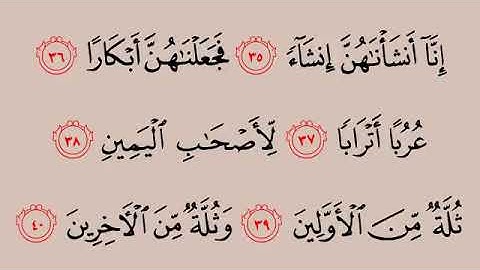 إِنَّآ أَنشَأْنَٰهُنَّ إِنشَآءً ٣٥ فَجَعَلْنَٰهُنَّ أَبْكَارًا ٣٦
عُرُبًا أَتْرَابًا ٣٧ لِّأَصْحَٰبِ ٱلْيَمِينِ ٣٨
ثُلَّةٌ مِّنَ ٱلْأَوَّلِينَ ٣٩ وَثُلَّةٌ مِّنَ ٱلْأَخِرِينَ ٤٠